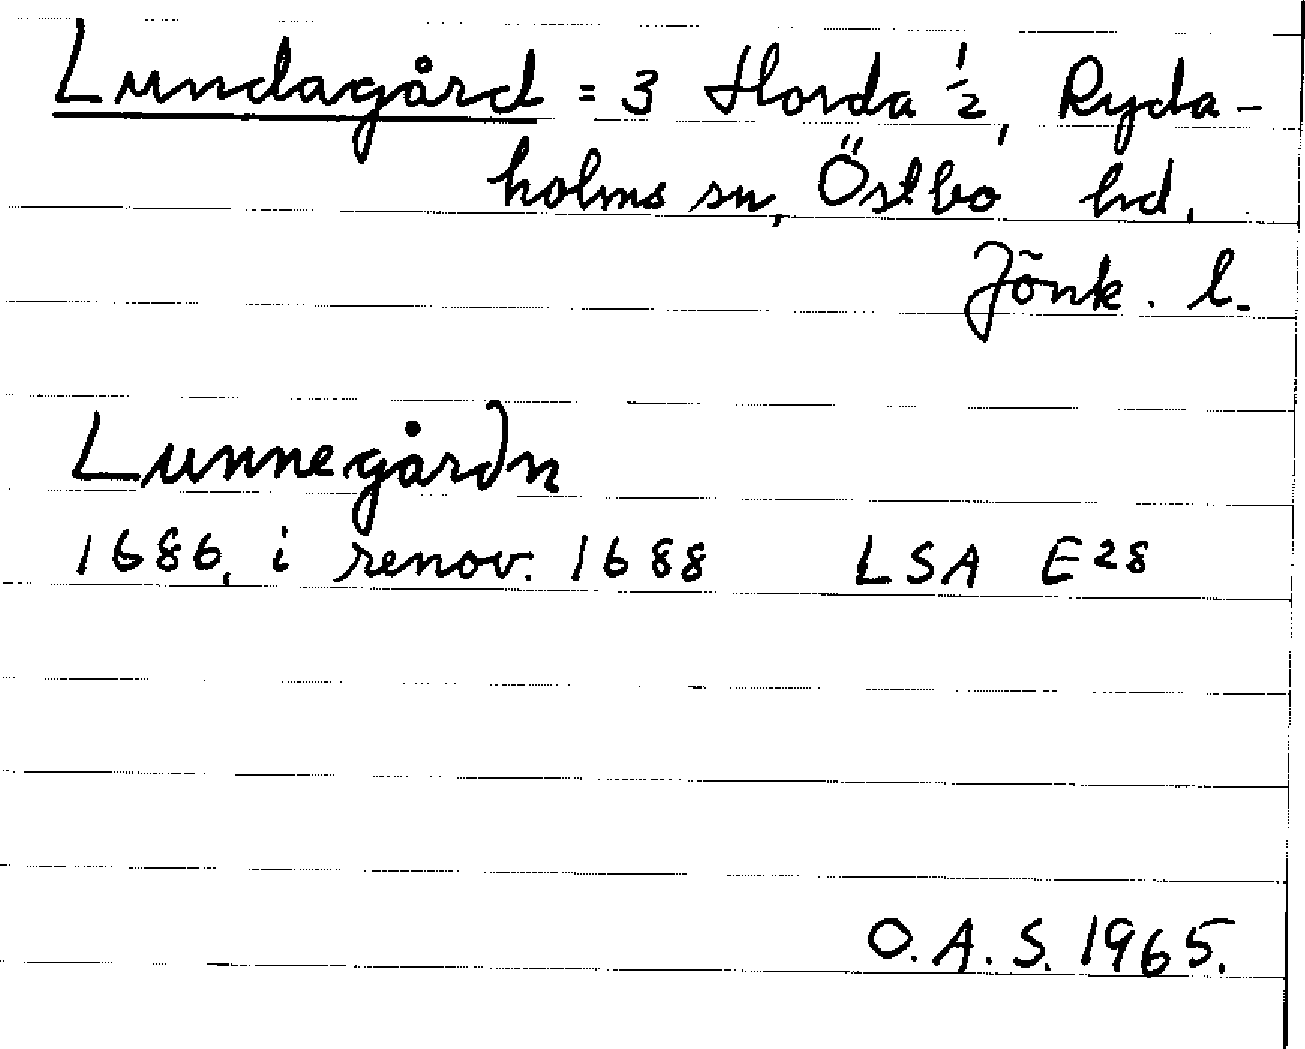 Lundagård = 3 Horda 1/2, Ryda-
holms sn, Östbo hd.
Jönk. l.
Lunnegårdn
1686, i renov. 1688 LSA E28
O.A.S. 1965.